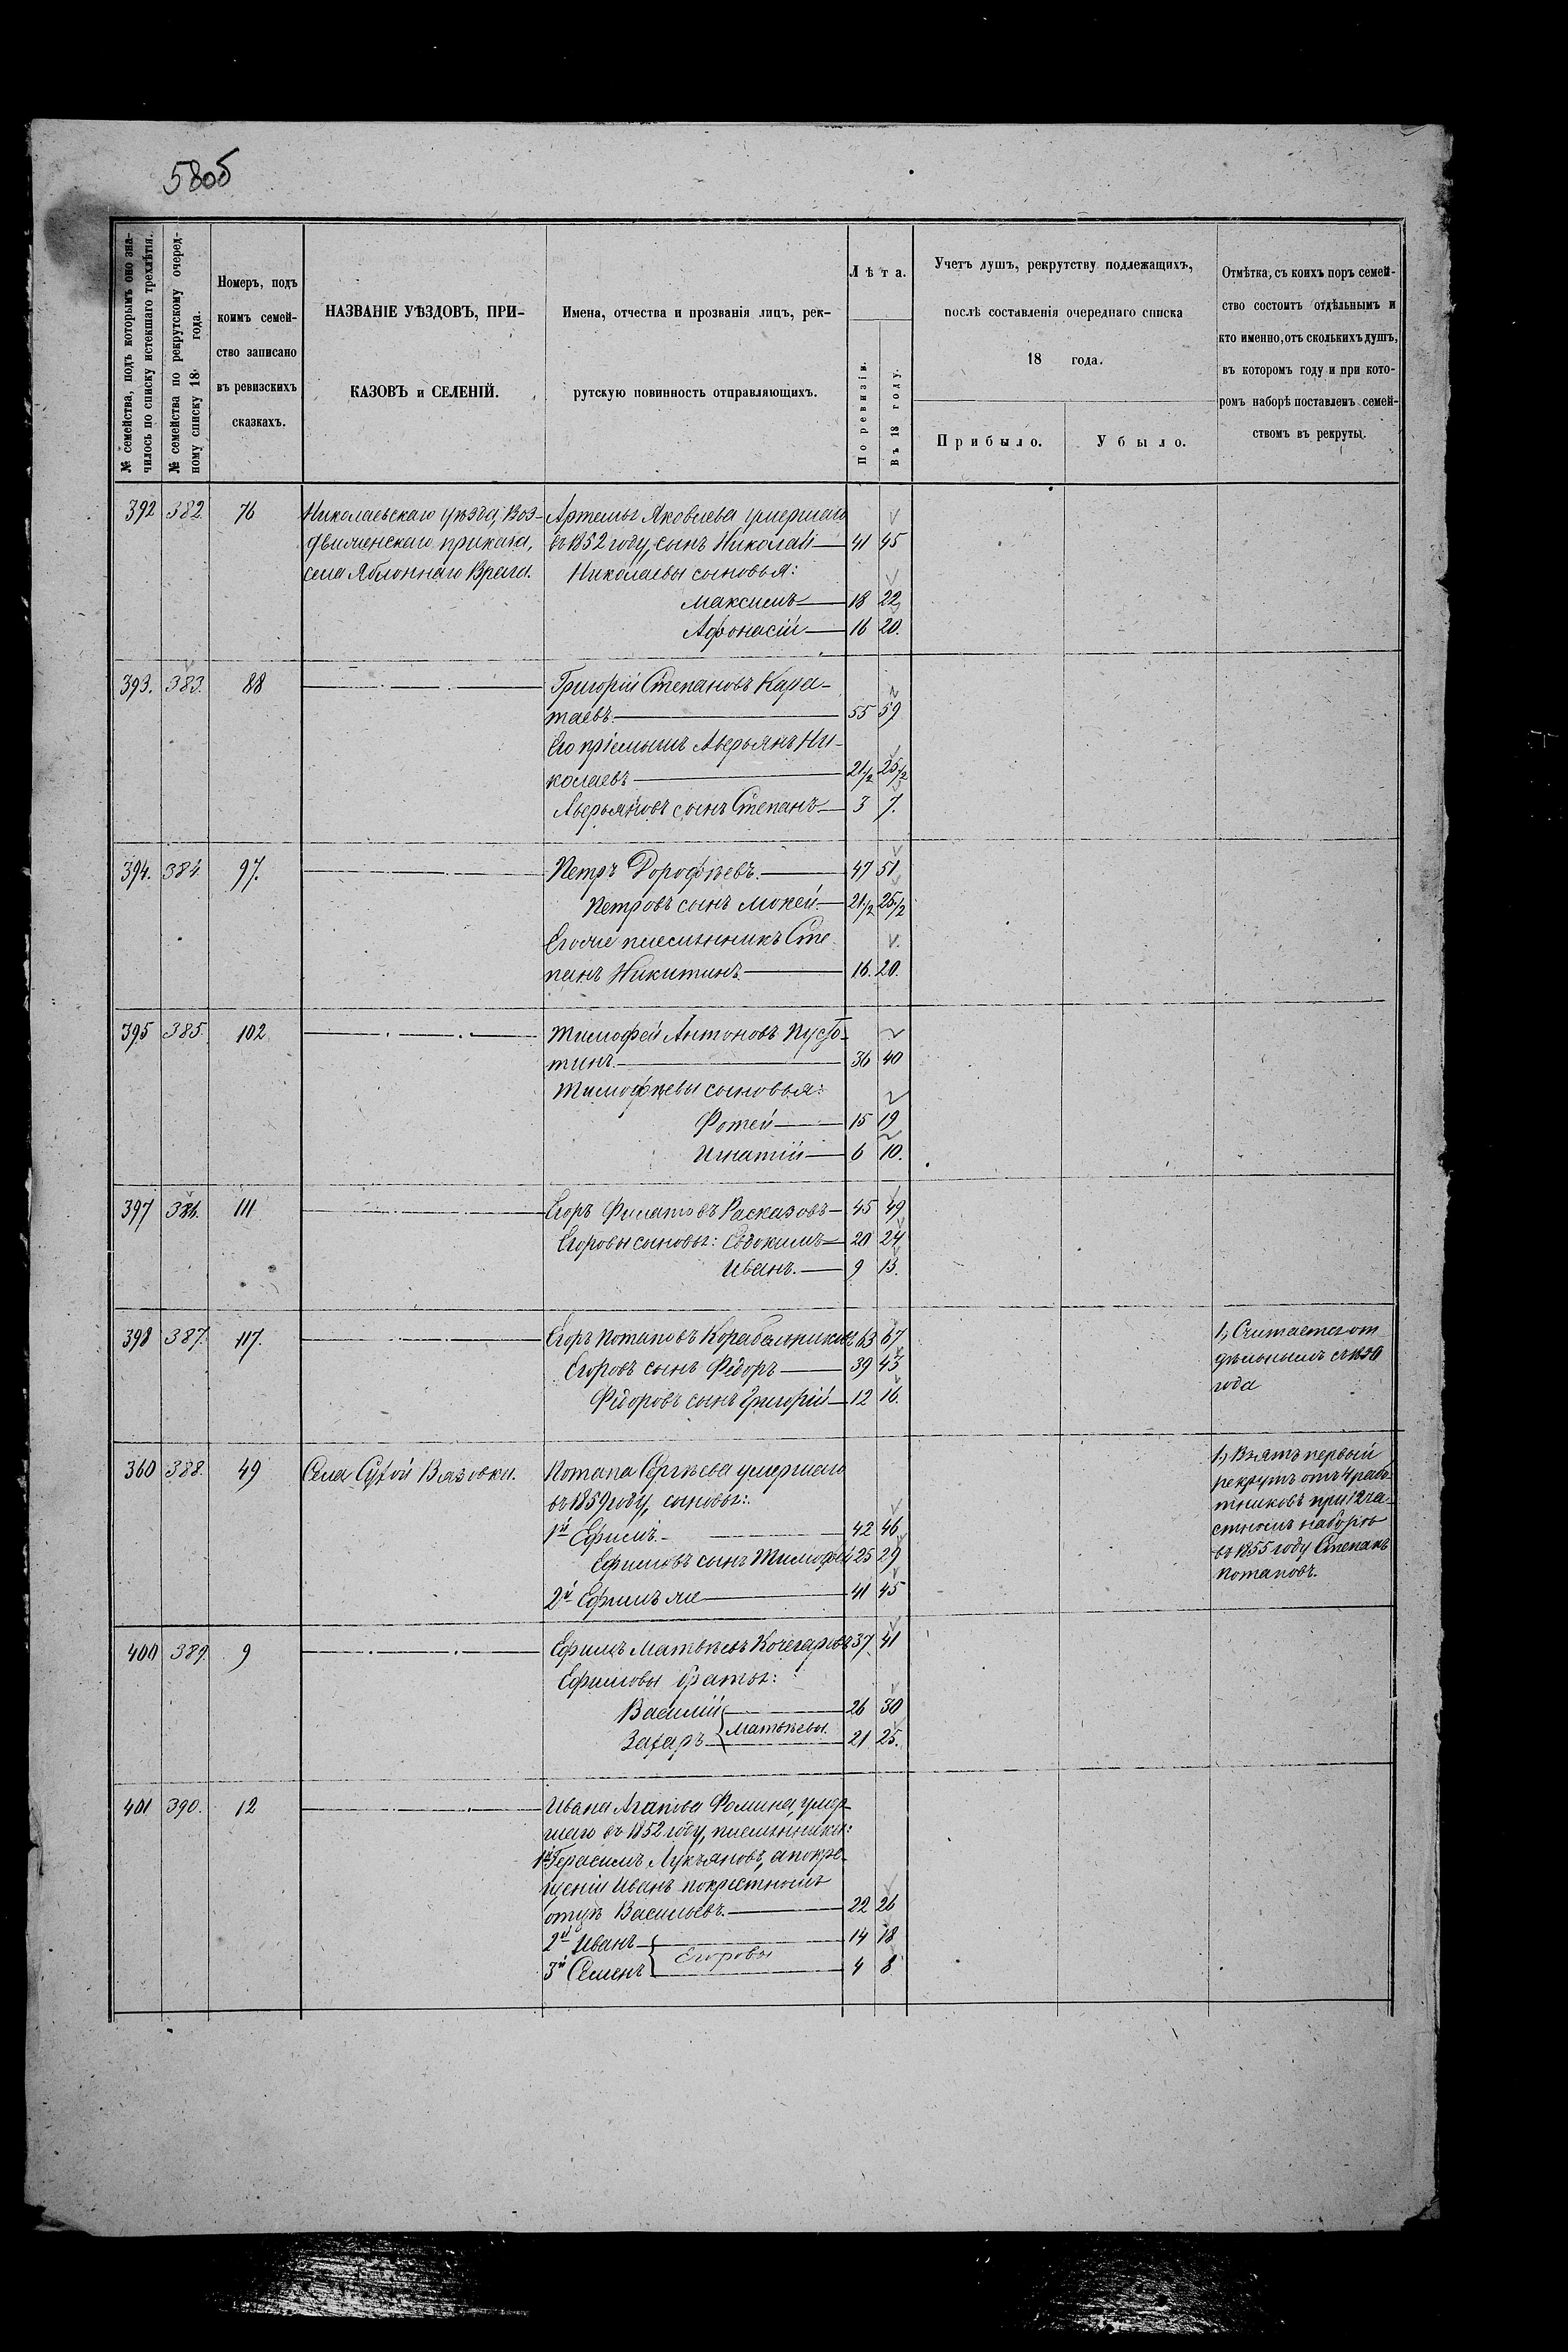 580б
№ семейства, подъ которымъ оно зна-
чилось по списку истекшаго трехлѣтія.
№ семейства по рекрутскому очеред-
ному списку 18 года.
Номеръ, подъ
коимъ семей-
ство записано
въ ревизскихъ
сказкахъ.
НАЗВАНІЕ УѢЗДОВЪ, ПРИ-
КАЗОВЪ и СЕЛЕНІЙ.
Имена, отчества и прозванія лицъ, рек-
рутскую повинность отправляющихъ.
Лѣта.
По ревизіи.
Въ 18 году.
Учетъ душъ, рекрутству подлежащихъ,
послѣ составленія очереднаго списка
18 года.
Прибыло.
Убыло.
Отмѣтка, съ коихъ поръ семей-
ство состоитъ отдѣльнымъ и
кто именно, отъ сколькихъ душъ,
въ которомъ году и при кото-
ромъ наборѣ поставленъ семей-
ствомъ въ рекруты.
392 382. 76 Николаевскаго уѣзда, Воз- Артемья Яковлева умершаго
движенскаго приказа, въ 1852 году, сынъ Николай 41 45
села Яблоннаго Врага. Николаевы сыновья:
Максимъ 18 22
Афонасій 16 20.
393. 383. 88 Григорій Степановъ Кара-
таевъ. 55 59
Его пріемышъ Аверьянъ Ни-
колаевъ 21 1/2 25 1/2
Аверьяновъ сынъ Степанъ 3 7.
394. 384. 97. Петръ Дорофѣевъ. 47 51
Петровъ сынъ Мокей. 21 1/2 25 1/2
Егоже племянникъ Сте-
панъ Никитинъ 16. 20.
395 385. 102 Тимофей Антоновъ Пусто-
тинъ. 36 40
Тимофѣевы сыновья:
Фотей 15 19
Игнатій 6 10.
397 386. 111 Егоръ Филатовъ Расказовъ 45 49
Егоровы сыновья: Евдокимъ 20 24
Иванъ. 9 13.
398 387. 117. Егоръ Потаповъ Корабельниковъ 63 67 1, Считается от
Егоровъ сынъ Фёдоръ 39 43 дѣльнымъ съ 1850
Фёдоровъ сынъ Григорій 12 16. года
360 388. 49 Села Сухой Вязовки. Потапа Сергѣева умершаго
въ 1859 году, сыновья:
1й Ефимъ. 42 46
Ефимовъ сынъ Тимофей 25 29
2й Ефимъ же 41 45
1, Взятъ первый
рекрутъ отъ 4 рабо-
тниковъ при 12 ча-
стномъ наборѣ
въ 1855 году Степанъ
Потаповъ.
400 389. 9 Ефимъ Матвѣевъ Кочегаровъ 37. 41
Ефимовы братья:
Василій 26 30
Матвѣевы.
Захаръ 21 25.
401 390. 12 Ивана Агапова Фомина, умер-
шаго въ 1852 году, племянники:
1й Герасимъ Лукьяновъ, а по кре-
щеніи Иванъ по крестномъ
отцѣ Васильевъ. 22 26
2й Иванъ 14 18
Егоровы
3й Семенъ 4 8